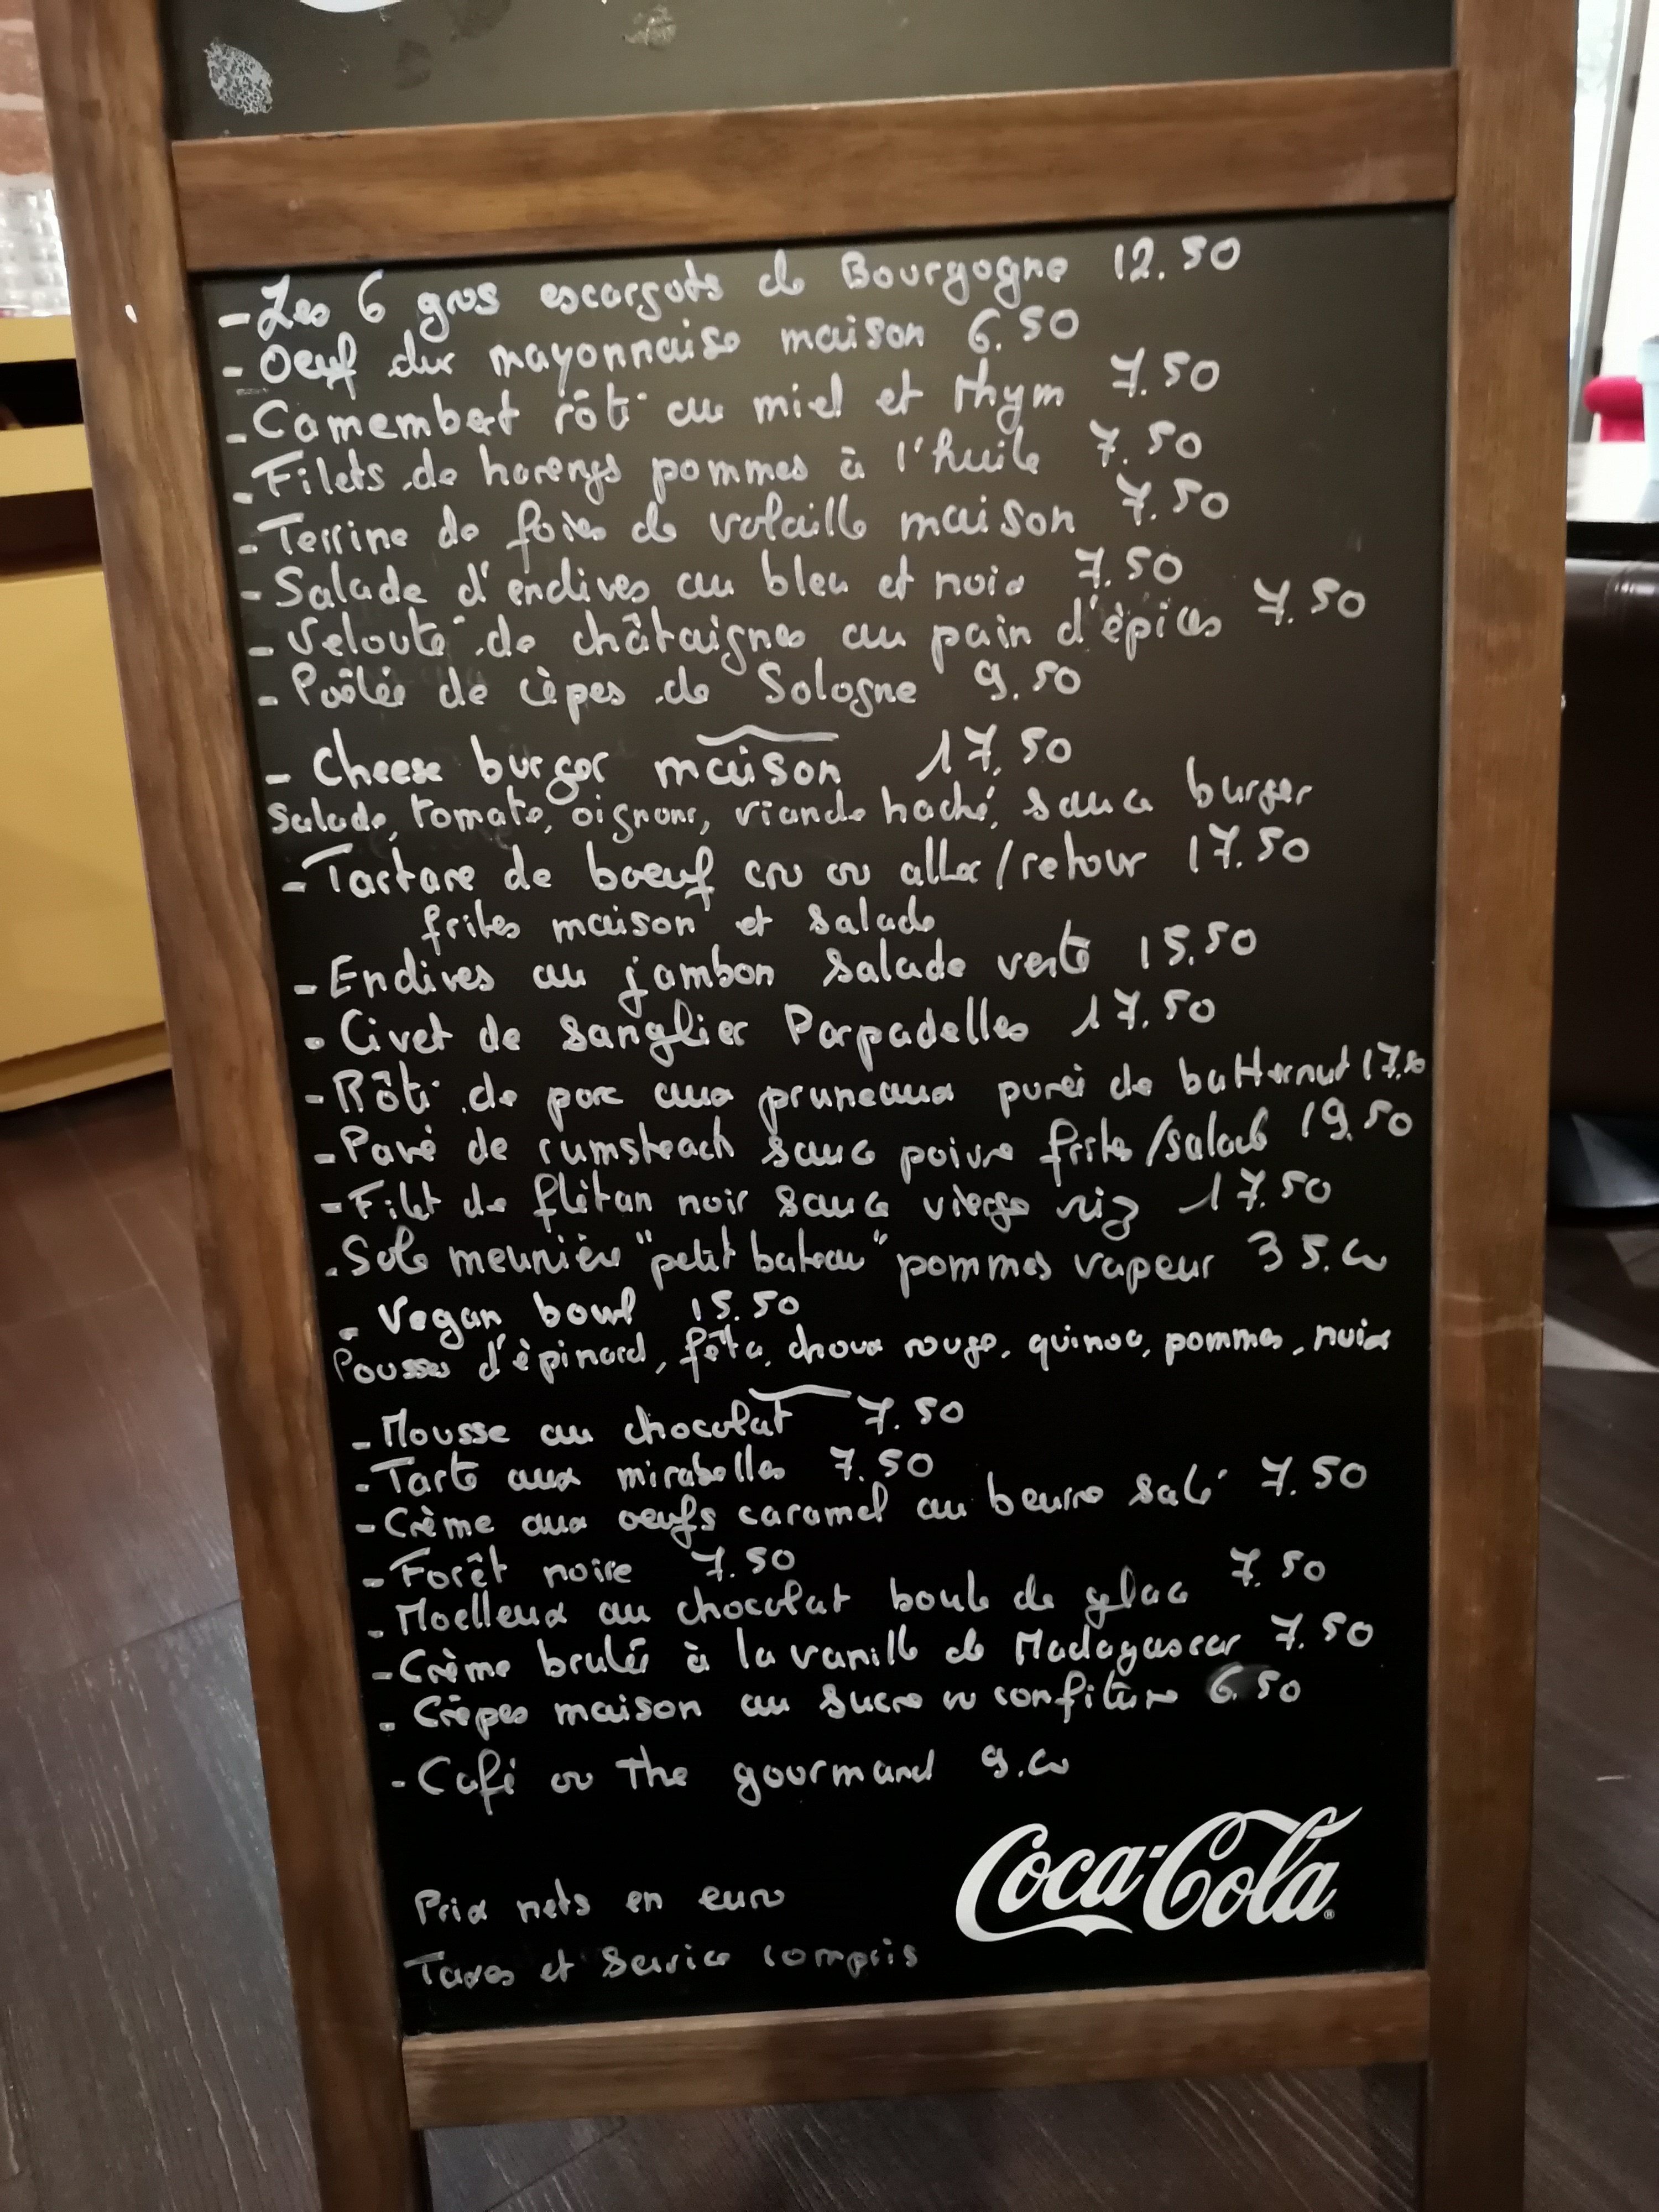 - Les 6 gros escargots de Bourgogne 12.50
- Oeuf dur mayonnaise maison 6.50
- Camembert rôti au miel et thym 7.50
- Filets de harengs pommes à l'huile 7.50
- Terrine de foies de volaille maison 7.50
- Salade d'endives au bleu et noix 7.50
- Velouté de châtaignes au pain d'épices 7.50
- Poêlée de cèpes de Sologne 9.50
- Cheese burger maison 17.50
Salade, tomate, oignons, viande haché, sauce burger
- Tartare de boeuf cru ou aller/retour 17.50
frites maison et salade
- Endives au jambon salade verte 15.50
- Civet de sanglier Parpadelles 17.50
- Rôti de porc aux pruneaux purée de butternut 17.50
- Pavé de rumsteack sauce poivre frites/salade 19.50
- Filet de flétan noir sauce vierge riz 17.50
. Sole meunière "petit bateau" pommes vapeur 35.00
- Vegan bowl 15.50
Pousses d'épinard, fêta, choux rouge, quinoa, pommes, noix
- Mousse au chocolat 7.50
- Tarte aux mirabelles 7.50
- Crème aux oeufs caramel au beurre salé 7.50
- Forêt noire 7.50
- Moelleux au chocolat boule de glace 7.50
- Crème brulée à la vanille de Madagascar 7.50
- Crêpes maison au sucre ou confiture 6.50
- Café ou thé gourmand 9.00
Coca-Cola®
Prix nets en euro
Taxes et service compris